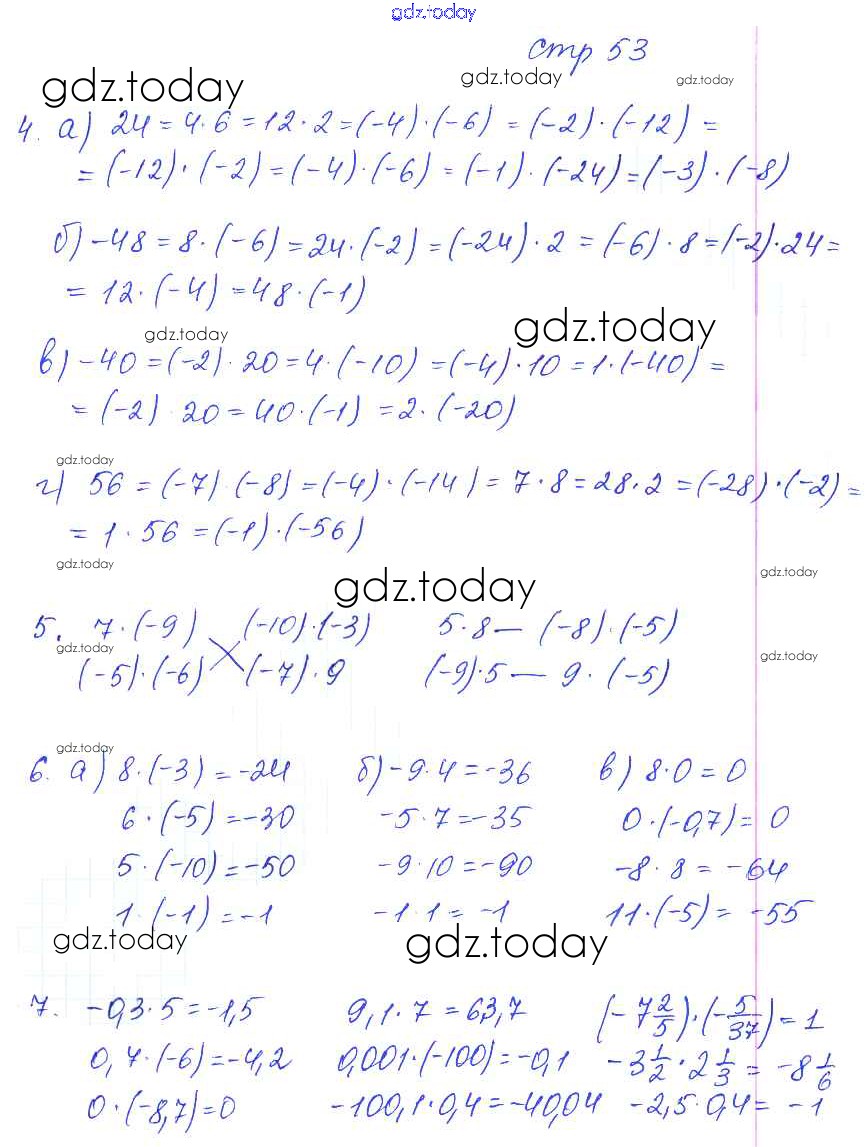 gdz.today
стр 53
gdz.today gdz.today gdz.today
4. а) 24 = 4·6 = 12·2 = (-4)·(-6) = (-2)·(-12) =
= (-12)·(-2) = (-4)·(-6) = (-1)·(-24) = (-3)·(-8)
б) -48 = 8·(-6) = 24·(-2) = (-24)·2 = (-6)·8 = (-2)·24 =
= 12·(-4) = 48·(-1)
gdz.today gdz.today
в) -40 = (-2)·20 = 4·(-10) = (-4)·10 = 1·(-40) =
= (-2) 20 = 40·(-1) = 2·(-20)
gdz.today
г) 56 = (-7) (-8) = (-4)·(-14) = 7·8 = 28·2 = (-28)·(-2) =
= 1·56 = (-1)·(-56)
gdz.today gdz.today gdz.today
5. 7·(-9) (-10)·(-3) 5·8 — (-8)·(-5)
gdz.today gdz.today
(-5)·(-6) (-7)·9 (-9)·5 — 9·(-5)
gdz.today
6. а) 8·(-3) = -24 б) -9·4 = -36 в) 8·0 = 0
6·(-5) = -30 -5·7 = -35 0·(-0,7) = 0
5·(-10) = -50 -9·10 = -90 -8·8 = -64
1·(-1) = -1 -1·1 = -1 11·(-5) = -55
gdz.today gdz.today
7. -0,3·5 = -1,5 9,1·7 = 63,7 (-7 2/5)·(-5/37) = 1
0,7·(-6) = -4,2 0,001·(-100) = -0,1 -3 1/2·2 1/3 = -8 1/6
0·(-8,7) = 0 -100,1·0,4 = -40,04 -2,5·0,4 = -1